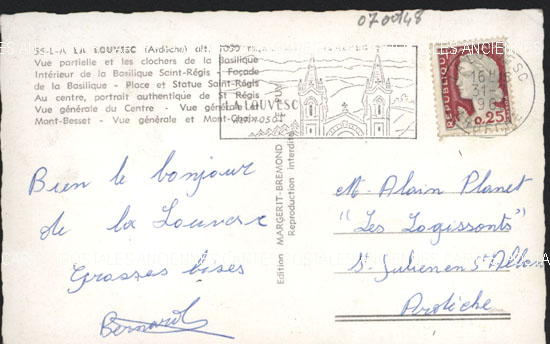 070048
55-L-A LA LOUVESC (Ardèche) alt. 1050
Vue partielle et les clochers de la Basilique
Intérieur de la Basilique Saint-Régis - Façade
de la Basilique - Place et Statue Saint-Régis
Au centre, portrait authentique de St Régis
Vue générale du Centre - Vue générale
Mont-Besset - Vue générale et Mont-Chaix
LALOUVESC
Alt. 1050
REPUBLIQUE
FRANÇAISE
0,25
16H
31-
196
ARDECHE
Edition MARGERIT-BREMOND
Reproduction interdite
Bien le bonjour
de la Louvesc
Grosses bises
Bernard
M. Alain Planet
"Les Logissonts"
St. Julien en St Alban
Ardèche